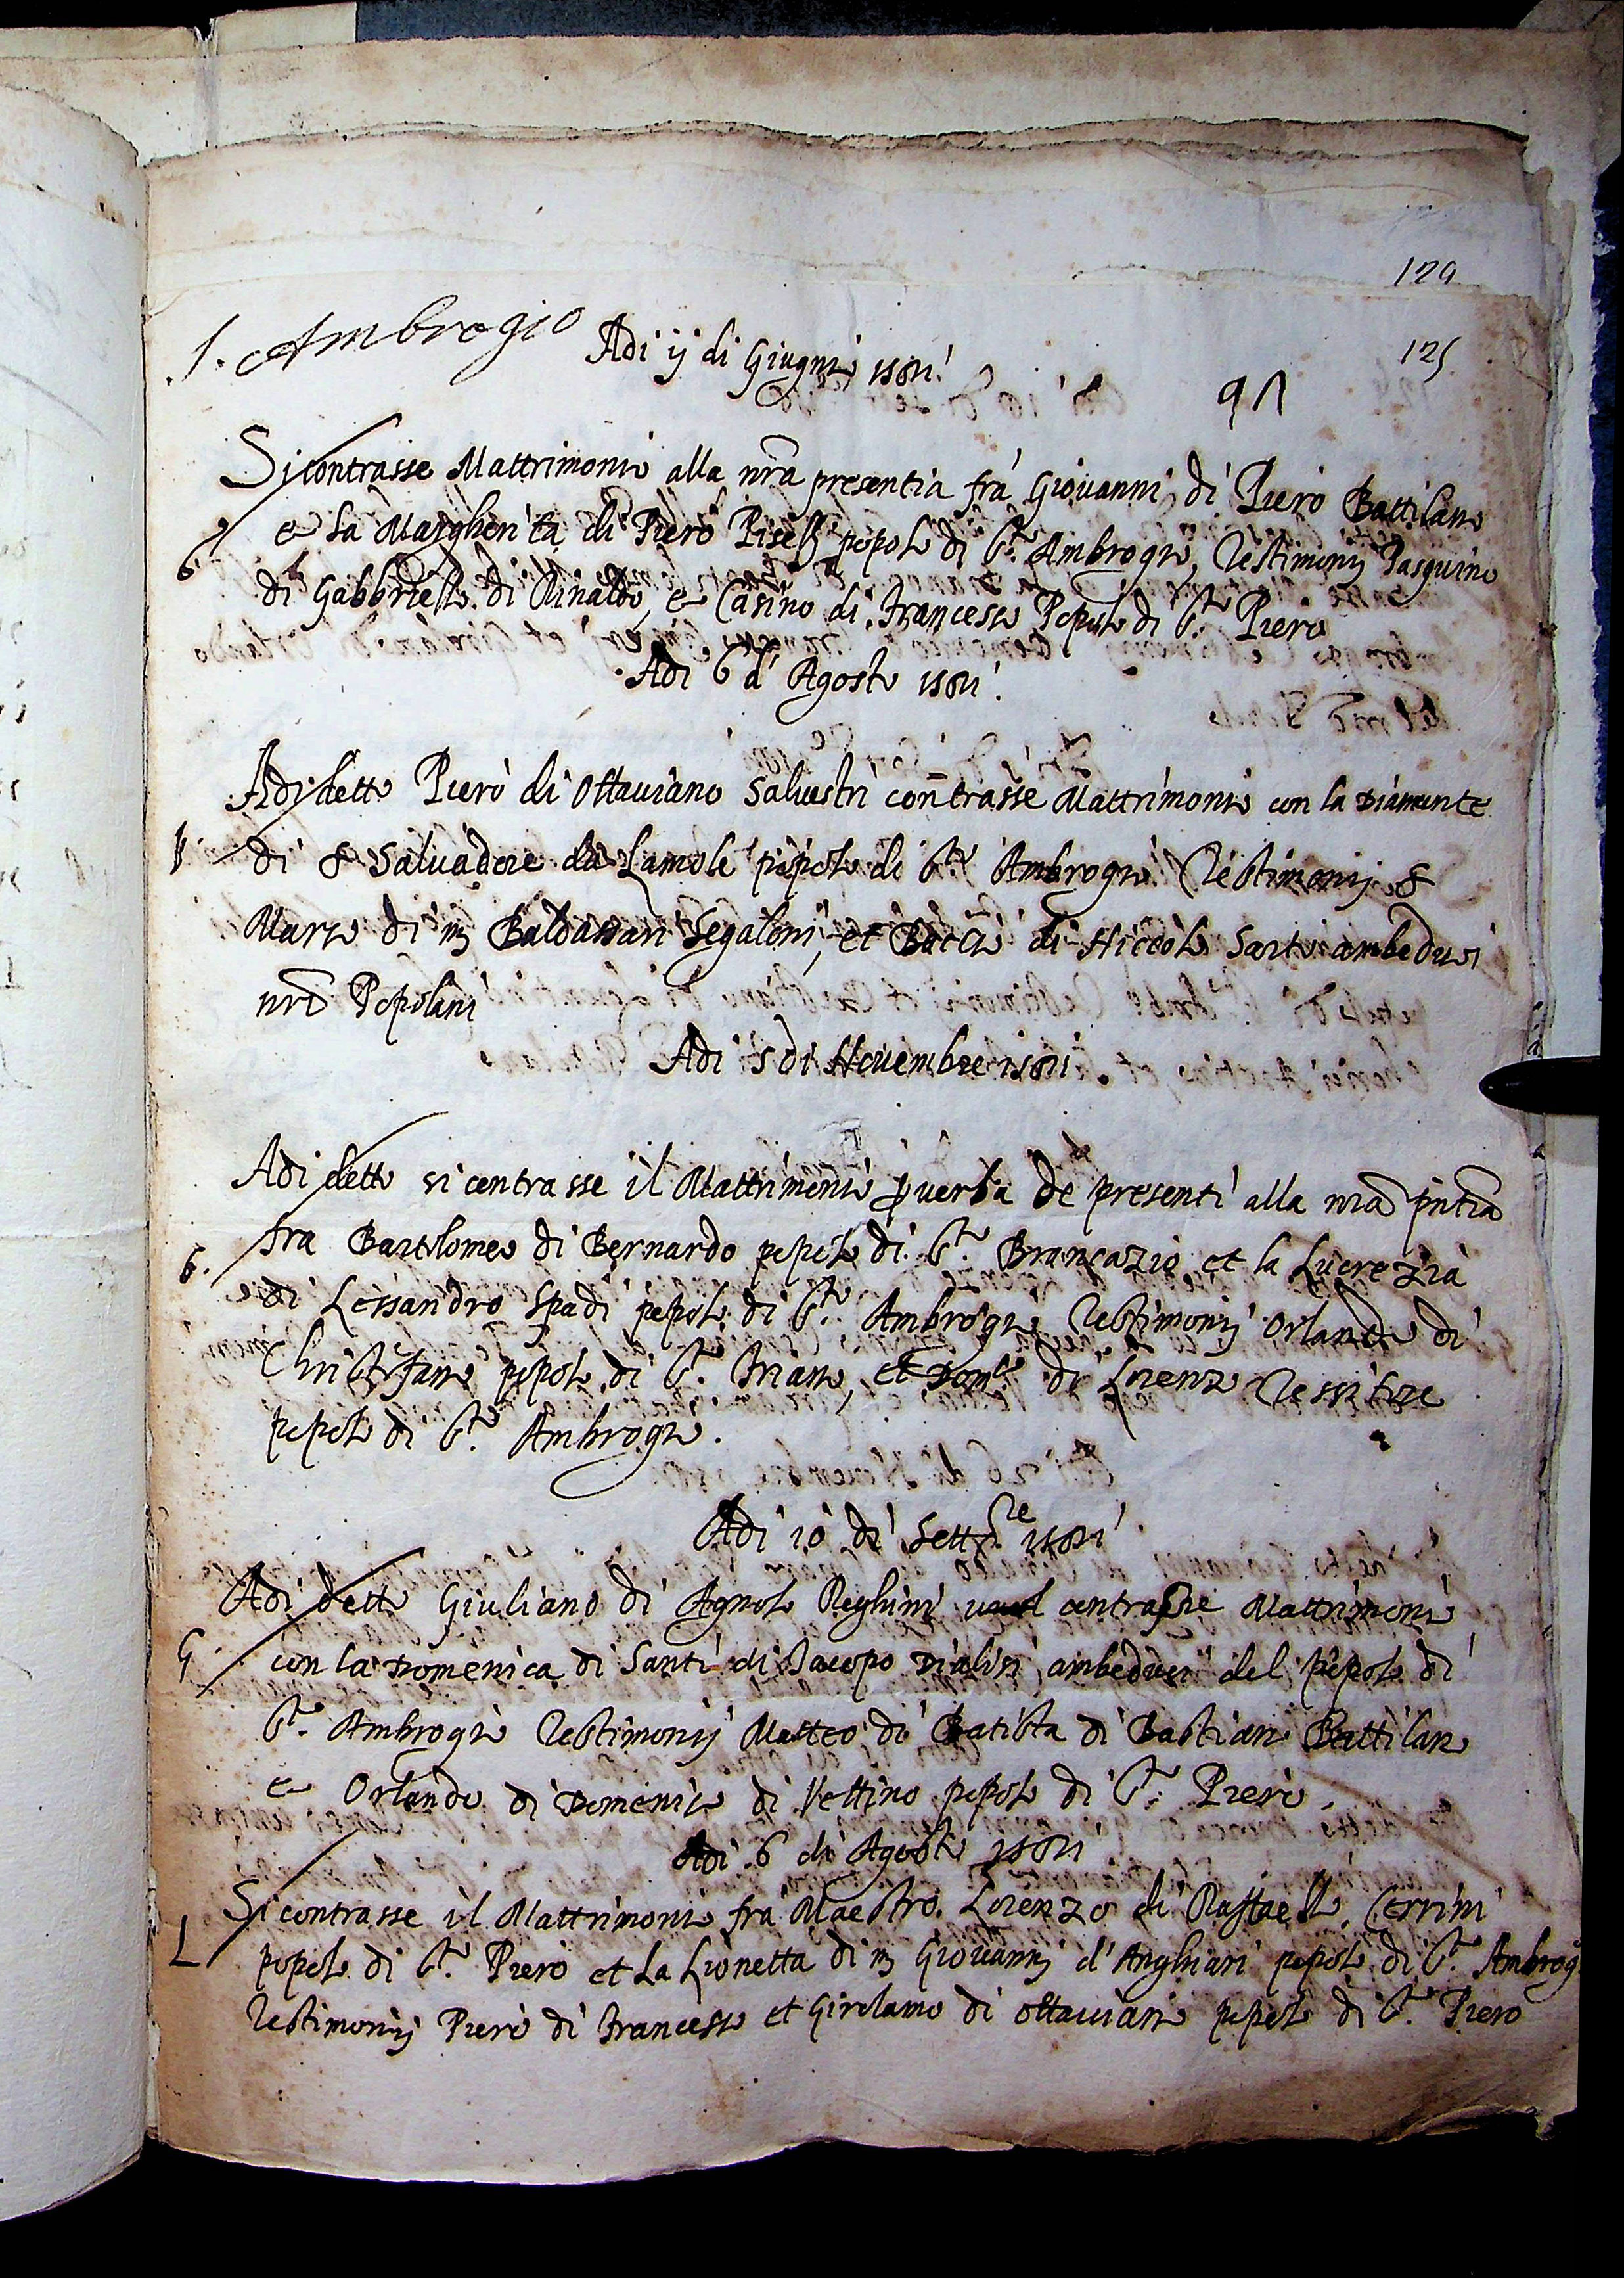 129
S. Ambrogio
Adi ij di Giugnio 1581
125
91
Si contrasse Mattrimonio alla nrã presentia frà Giovanni di Piero Battilano
G e la Margherita di Piero Piselli popolo di Sto Ambrogio, Testimonij Pasquino
di Gabbriello di Rinaldo, e Casino di Francesco Popolo di Sto Piero
Adi 6 d'Agosto 1581
Adi detto Piero di Ottaviano Salvestri contrasse Mattrimonio con la Diamante
P di S Salvadore da Lamole popolo di Sto Ambrogio Testimonij S
Mario di m Baldassari Segaloni, et Baccio di Niccolo Sarto ambedusi
nrĩ Popolani
Adi 5 di Novembre 1581
Adi detto si contrasse il Mattrimonio p verba de presenti alla nrã pntia
B. fra Bartolomeo di Bernardo popolo di Sto Brancazio et la Lucrezia
di Lessandro Spadi popolo di Sto Ambrogio Testimonij Orlando di
Christofano popolo di Sto Friano, et Domco di Lorenzo Tessitore
popolo di Sto Ambrogio.
Adi 10 di Settre 1581
Adi detto Giuliano di Agnolo Reghini contrasse Mattrimonio
G con la Domenica di Santi di Jacopo ambedusi del popolo di
Sto Ambrogio Testimonij Matteo di Batista di Bastiano Battilano
e Orlando di Domenico di Vettino popolo di Sto Piero
Adi 6 di Agosto 1581
Si contrasse il Mattrimonio frà Maestro Lorenzo di Raffaello Cerrini
L popolo di Sto Piero et la Lionetta di m Giovannj d'Anghiari popolo di Sto Ambrog
Testimonij Piero di Francesco et Girolamo di Ottaviano popolo di Sto Piero